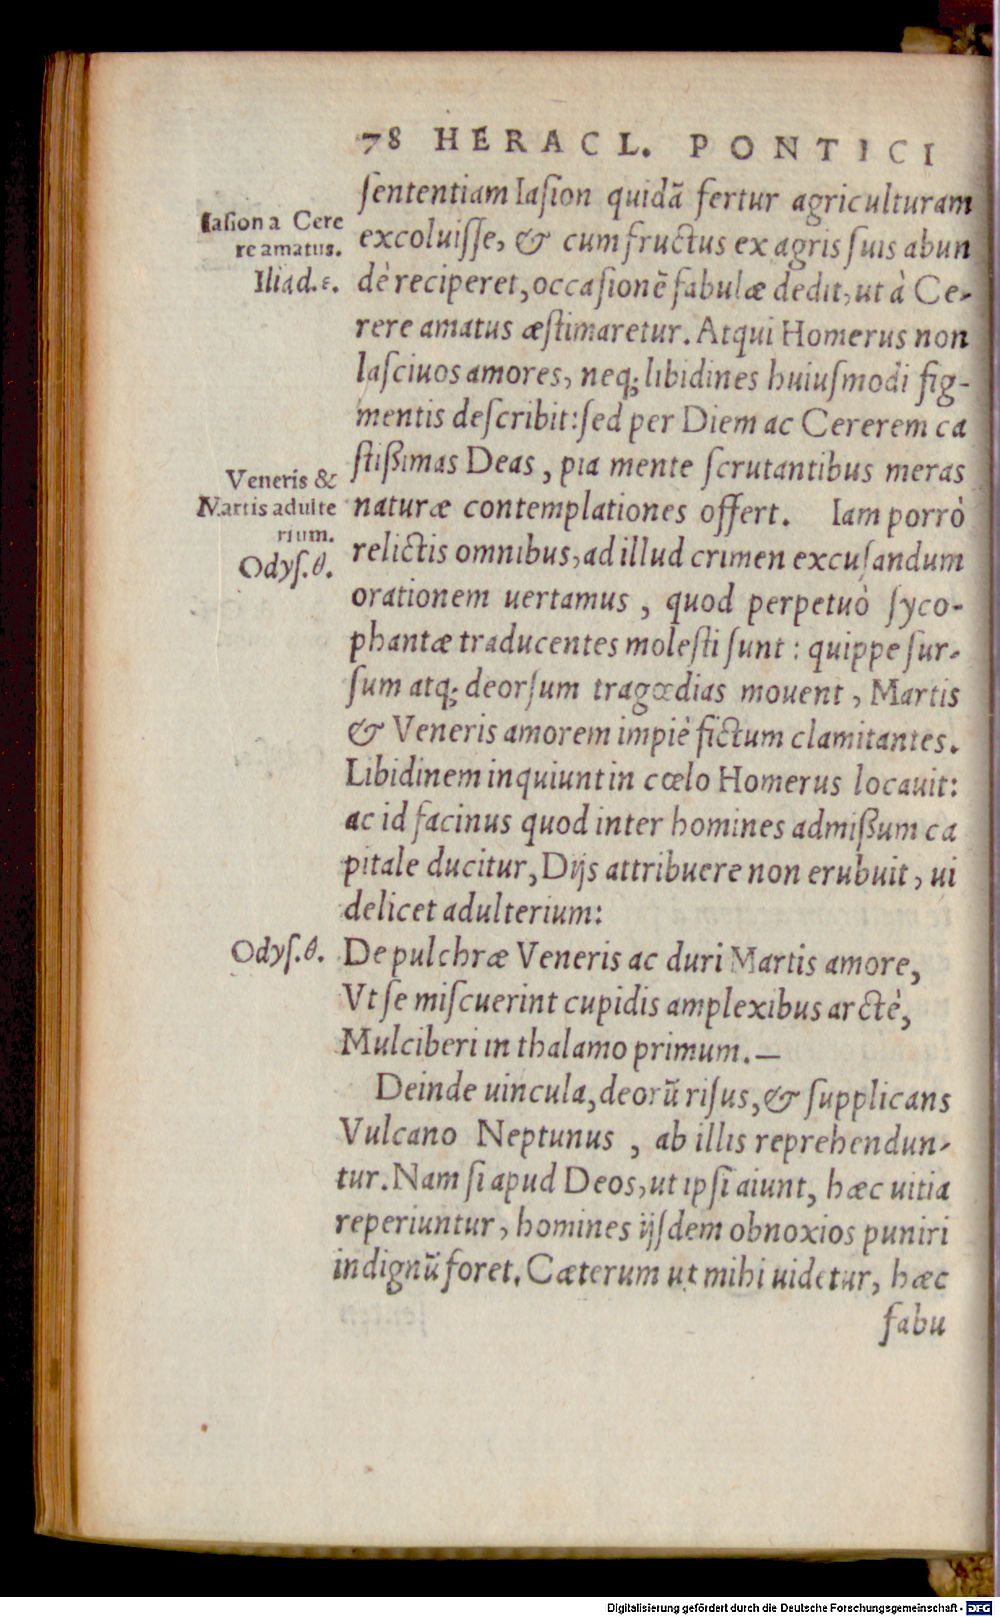 78 HERACL. PONTICI
ſententiam Iaſion quidã fertur agriculturam
Iaſion a Cere
excoluiſſe, & cum fructus ex agris ſuis abun
re amatus.
Iliad.ε.
dè reciperet, occaſionẽ fabulæ dedit, ut à Ce-
rere amatus æſtimaretur. Atqui Homerus non
laſciuos amores, neq; libidines huiuſmodi fig-
mentis deſcribit: ſed per Diem ac Cererem ca
ſtiſſimas Deas, pia mente ſcrutantibus meras
Veneris &
Martis adulte
rium.
Odyſ.θ.
naturæ contemplationes offert. Iam porrò
relictis omnibus, ad illud crimen excuſandum
orationem uertamus, quod perpetuò ſyco-
phantæ traducentes moleſti ſunt: quippe ſur-
ſum atq; deorſum tragœdias mouent, Martis
& Veneris amorem impiè fictum clamitantes.
Libidinem inquiunt in cœlo Homerus locauit:
ac id facinus quod inter homines admiſſum ca
pitale ducitur, Dijs attribuere non erubuit, ui
delicet adulterium:
Odyſ.θ.
De pulchræ Veneris ac duri Martis amore,
Vt ſe miſcuerint cupidis amplexibus arctè,
Mulciberi in thalamo primum.—
Deinde uincula, deorũ riſus, & ſupplicans
Vulcano Neptunus, ab illis reprehendun-
tur. Nam ſi apud Deos, ut ipſi aiunt, hæc uitia
reperiuntur, homines ijſdem obnoxios puniri
indignũ foret. Cæterum ut mihi uidetur, hæc
fabu
Digitalisierung gefördert durch die Deutsche Forschungsgemeinschaft - DFG